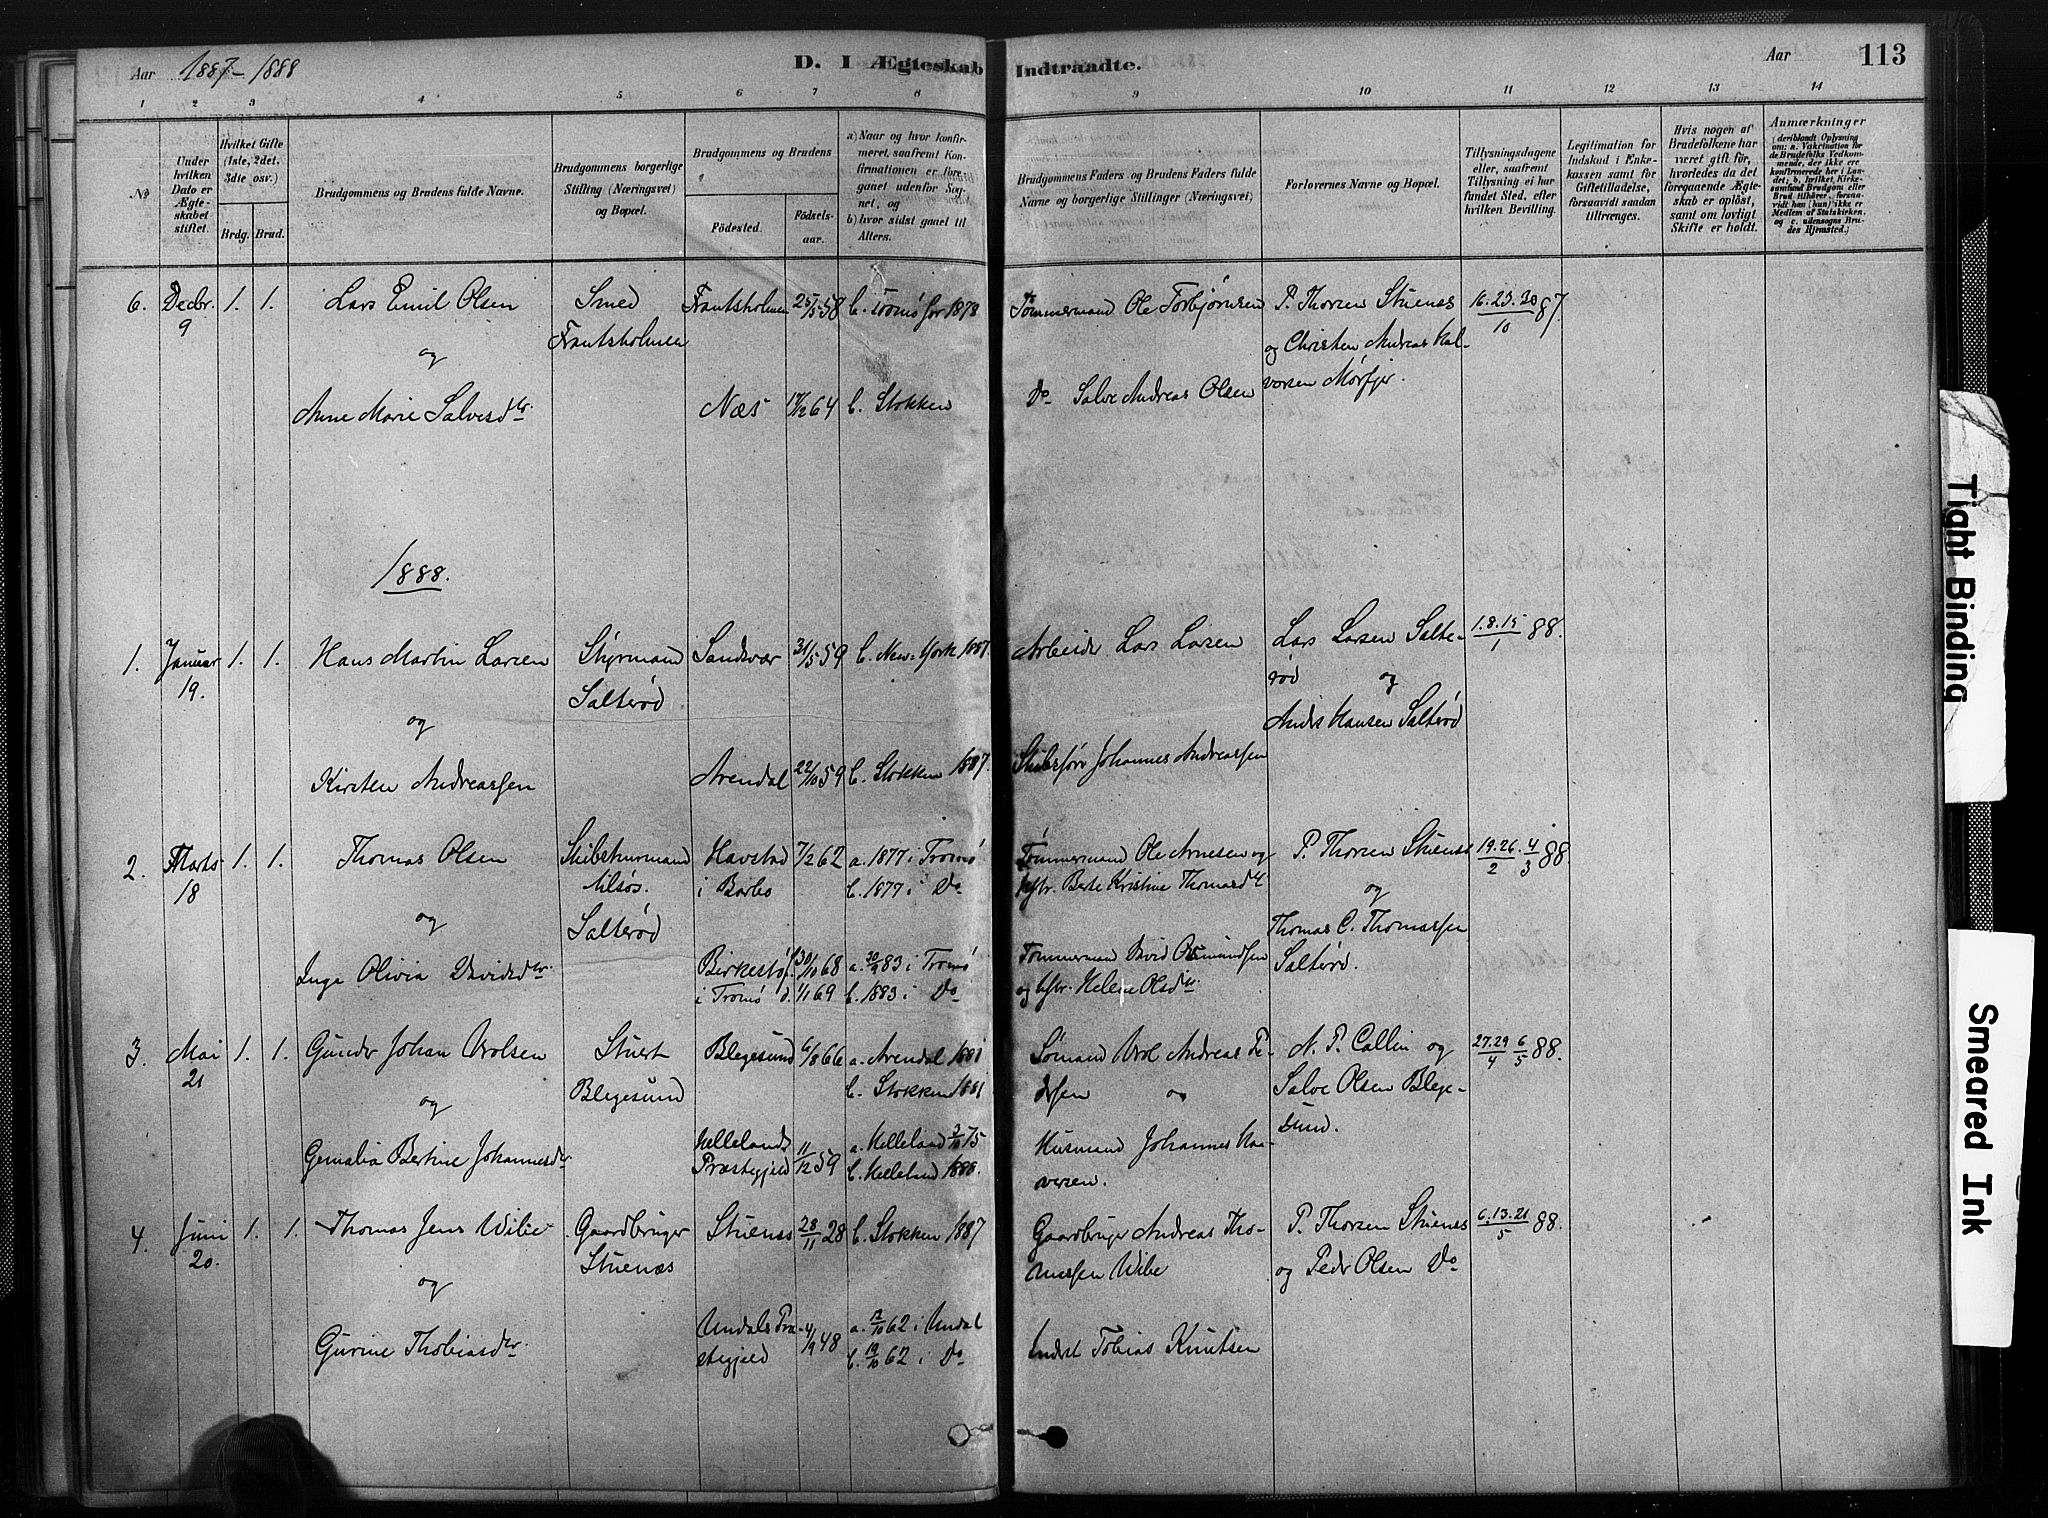 Aar 1887-1888
D. I Ægteskab Indtraadte.
Aar
113
1 2 3 4 5 6 7 8 9 10 11 12 13 14
No
Under hvilken Dato er Ægteskabet stiftet.
Hvilket Gifte (1ste, 2det, 3die osv.)
Brdg. Brud.
Brudgommens og Brudens fulde Navne.
Brudgommens borgerlige Stilling (Næringsvei) og Bopæl.
Brudgommens og Brudens
Födested. Födselsaar.
a) Naar og hvor konfirmeret, saafremt Konfirmationen er foregaaet udenfor Sognet, og
b) hvor sidst gaaet til Alters.
Brudgommens Faders og Brudens Faders fulde Navne og borgerlige Stillinger (Næringsvei)
Forlovernes Navne og Bopæl.
Tillysningsdagene eller, saafremt Tillysning ei har fundet Sted, efter hvilken Bevilling.
Legitimation for Indskud i Enkekassen samt for Giftetilladelse, forsaavidt saadan tiltrænges.
Hvis nogen af Brudefolkene har været gift för, hvorledes da det foregaaende Ægteskab er oplöst, samt om lovligt Skifte er holdt.
Anmærkninger
(deriblandt Oplysning om: a. Vakcination for de Brudefolks Vedkommende, der ikke ere konfirmerede her i Landet; b. hvilket Kirkesamfund Brudgom eller Brud tilhörer, forsaavidt han (hun) ikke er Medlem af Statskirken, og c. udensogns Brudes Hjemsted.)
6. Decbr. 9 1. 1. Lars Emil Olsen Smed Frantsholmen Frantsholmen 25/5 58 b. Tromø før 1878 Tømmermand Ole Torbjørnsen P. Thorsen Stuenes 16. 23. 30/10 87.
og
og Christen Andreas Halvorsen Mørfjer.
Anne Marie Salvesdtr. Næs 64 b. Stokken Do Salve Andreas Olsen
1888.
1. Januar 19. 1. 1. Hans Martin Larsen Styrmand Salterød Sandvær 31/5 59 b. New-York 1887. Arbeider Lars Larsen Lars Larsen Salterød 1. 8. 15/1 88.
og
og
Anders Hansen Salterød
Kirsten Andreassen Arendal 22/10 59 b. Stokken 1887. Skibsfører Johannes Andreassen
2. Marts 18 1. 1. Thomas Olsen Skibstømmermand tilsøs. Salterød Havstad i Barbo 7/2 62 a. 1877 i Tromø
b. 1877 i Do Tømmermand Ole Arnesen og Hstr. Berte Kristine Thomasdtr P. Thorsen Stuenes 19. 26./2 4/3 88.
og
og
Thomas C. Thomassen Salterød.
Inga Olivia Davidsdtr. Birkestø i Tromø f. 30/10 68 d. 1/1 69 a. 30/9 83 i Tromø
b. 1883 i Do Tømmermand David Osmundsen og Hstr. Helene Olsdtr.
3. Mai 21 1. 1. Gunder Johan Arolsen Stuert Blegesund Blegesund 6/8 66 a. Arendal 1881
b. Stokken 1881 Sømand Arol Andreas Pedersen N. P. Callin og Salve Olsen Blegesund. 27. 29/4 6/5 88.
og
og
Gemalia Bertine Johannesdtr Hellelands Præstegjeld 11/12 59 a. Helleland 3/10 75
b. Helleland 1888. Husmand Johannes Haaversen.
4. Juni 20. 1. 1. Thomas Jens Wibe Gaardbruger Stuenæs Stuenes 28/11 28 b. Stokken 1887 Gaardbruger Andreas Thomassen Wibe P. Thorsen Stuenes og Peder Olsen Do 6. 13. 21/5 88.
og
Gurine Thobiasdtr. Undals Præstegjeld 4/9 48 a. 12/10 62 i Undal
b. 19/10 62 i Do Inderst Tobias Knutsen
Tight Binding
Smeared Ink